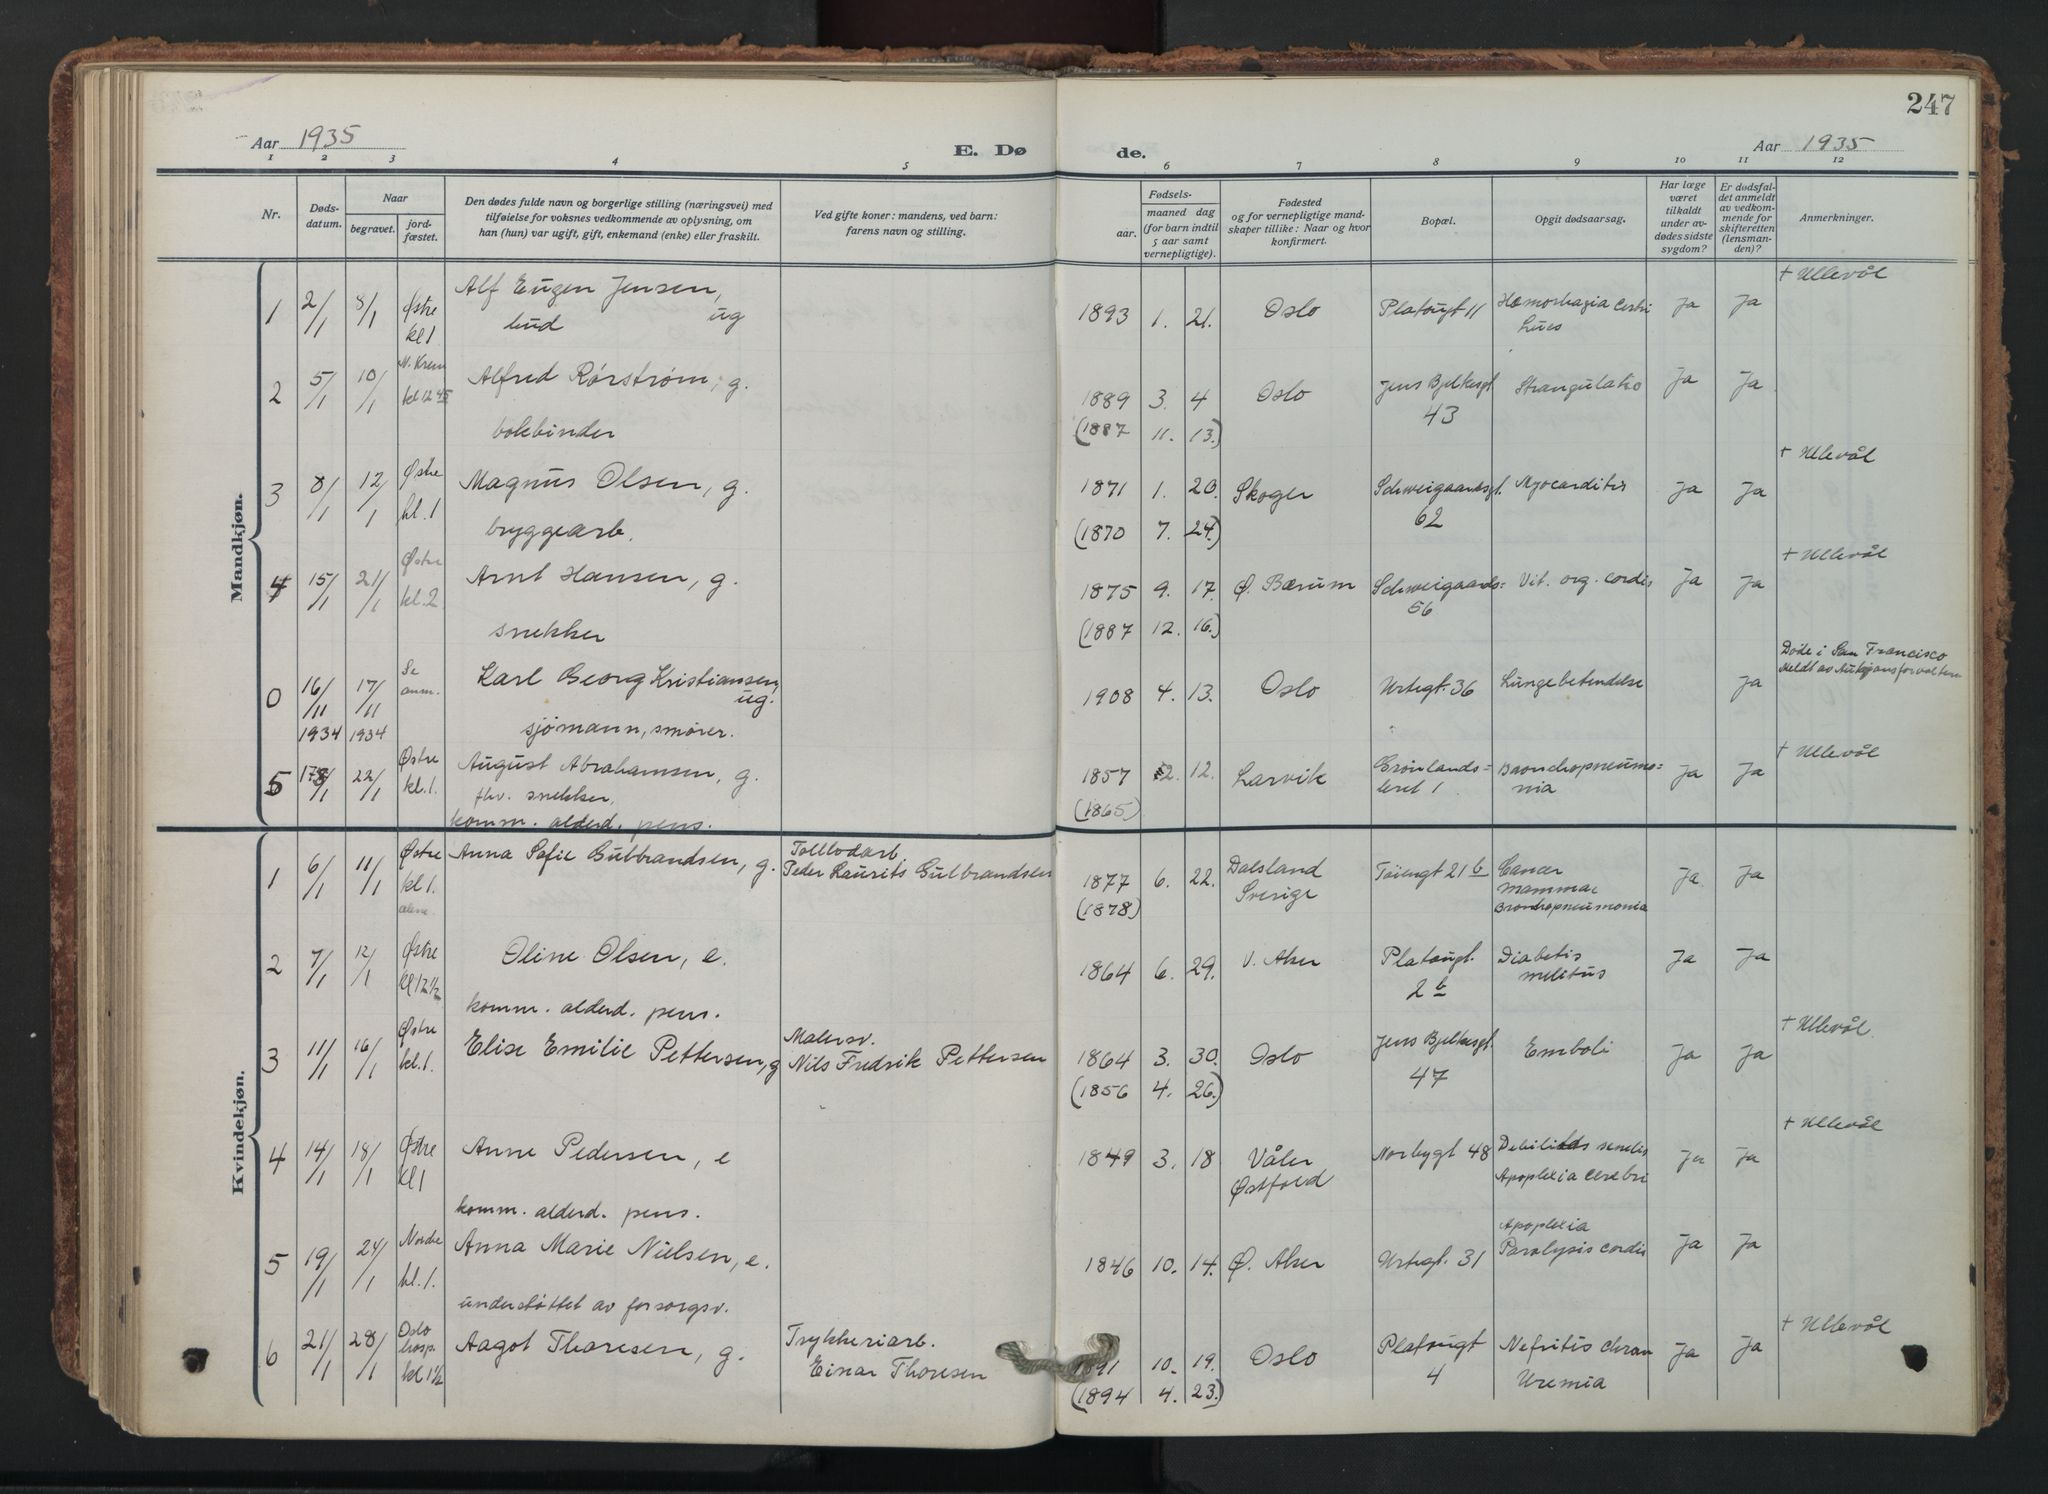 247
Aar 1935
E. Dø
de.
Aar 1935
1 2 3 4 5 6 7 8 9 10 11 12
Nr.
Døds-
datum.
Naar
begravet.
jord-
fæstet.
Den dødes fulde navn og borgerlige stilling (næringsvei) med
tilføielse for voksnes vedkommende av oplysning, om
han (hun) var ugift, gift, enkemand (enke) eller fraskilt.
Ved gifte koner: mandens, ved barn:
farens navn og stilling.
Fødsels-
aar.
maaned dag
(for barn indtil
5 aar samt
vernepligtige).
Fødested
og for vernepligtige mand-
skaper tillike: Naar og hvor
konfirmert.
Bopæl.
Opgit dødsaarsag.
Har læge
været
tilkaldt
under av-
dødes sidste
sygdom?
Er dødsfal-
det anmeldt
av vedkom-
mende for
skifteretten
(lensman-
den)?
Anmerkninger.
Mandkjøn.
1 2/1 8/1 Østre kl 1 Alf Eugen Jensen, ug 1893 1. 21. Oslo Platougt 11 Hæmorhagia cerbri Ja Ja + Ullevål
bud Lues
2 5/1 10/1 N. Krem kl 12 45 Alfred Rørstrøm, g. 1889 3. 4 Oslo Jens Bjelkesgt 43 Strangulatio Ja Ja
bokbinder (1887 11. 13.)
3 8/1 12/1 Østre kl. 1 Magnus Olsen, g. 1871 1. 20. Skoger Schweigaardsgt. 62 Myocarditis Ja Ja + Ullevål
bryggearb. (1870 7. 24.)
4 15/1 21/1 Østre kl. 2 Arnt Hansen, g. 1875 9. 17. Ø. Bærum Schweigaards= 56 Vit. org. cordis Ja Ja + Ullevål
snekker (1887 12. 16.)
0 16/11 1934 17/11 1934 Se anm. Karl Georg Kristianssen, ug. 1908 4. 13. Oslo Urtegt. 36 Lungebetendelse Ja Døde i San Francisco
sjømann, smører. Meldt av
5 22/1 Østre kl. 1. August Abrahamsen, g. 1857 2. 12. Larvik Grønlands= leret 1 Bronchopneumo= nia Ja Ja + Ullevål
fhv. snekker, (1865)
komm. alderd. pens.
Kvindekjøn.
1 6/1 11/1 Østre kl 1. alene. Anna Sofie Gulbrandsen, g. Tollbodarb Peder Laurits Gulbrandsen 1877 6. 22. Dalsland Sverige Töiengt 21 b Cancer mammae Bronchopneumonia Ja Ja
(1878)
2 7/1 12/1 Østre kl 12 1/2 Oline Olsen, e. 1864 6. 29. V. Aker Platougt. 2 b Diabetis melitus Ja Ja
komm. alderd. pens.
3 11/1 16/1 Østre kl. 1. Elise Emilie Pettersen, g Malersv. Nils Fredrik Pettersen 1864 3. 30. Oslo Jens Bjelkesgt. 47 Emboli Ja Ja + Ullevål
(1856 4. 26.)
4 14/1 18/1 Østre kl 1 Anne Pedersen, e 1849 3. 18 Våler Østfold Norbygt 48 Debilitas senilis Apoplexia cerebri Ja Ja + Ullevål
komm. alderd. pens.
5 19/1 24/1 Nordre kl. 1. Anna Marie Nielsen, e. 1846 10. 14. Ø. Aker Urtegt. 31 Apoplexia Paralysis cordis Ja Ja
understøttet av forsorgsv.
6 21/1 28/1 Oslo hosp. kl 1 1/2 Aagot Thoresen, g. Trykkeriarb. Einar Thoresen 1891 10. 19. Oslo Platougt 4 Nefritis chron Uremia Ja Ja + Ullevål
(1894 4. 23.)